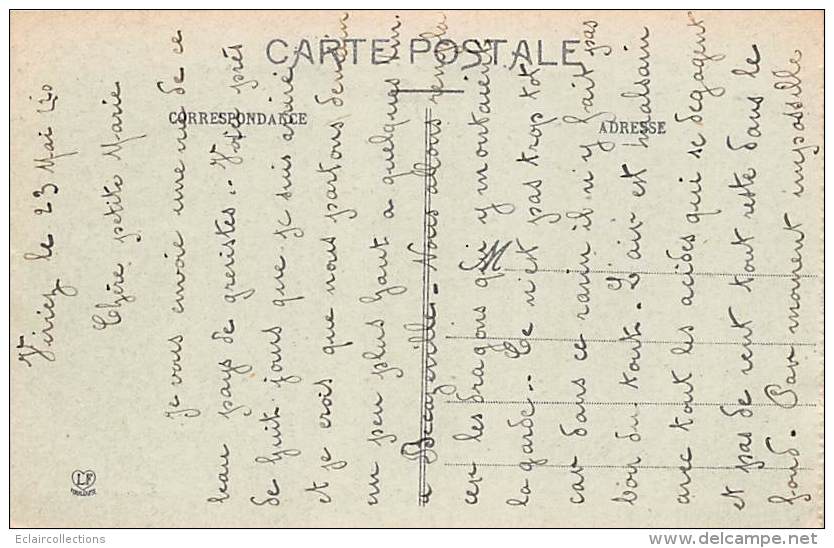 CARTE POSTALE
CORRESPONDANCE
ADRESSE
M
le 23 Mai
Chère petite Marie
je vous envoie une vue de ce
beau pays de grévistes.. Voilà près
de huit jours que je suis arrivé
et je crois que nous partons demain
un peu plus haut a quelques km.
a Decazeville. Nous allons rempla
cer les dragons qui y montaient
la garde.. Ce n'est pas trop tot
car dans ce ravin il n'y fait pas
bon du tout. L'air est malsain
avec tout les acides qui se dégagent
et pas de vent tout reste dans le
fond. Par moment impossible
LF
TOULOUSE
Eclaircollections
delcampe.net